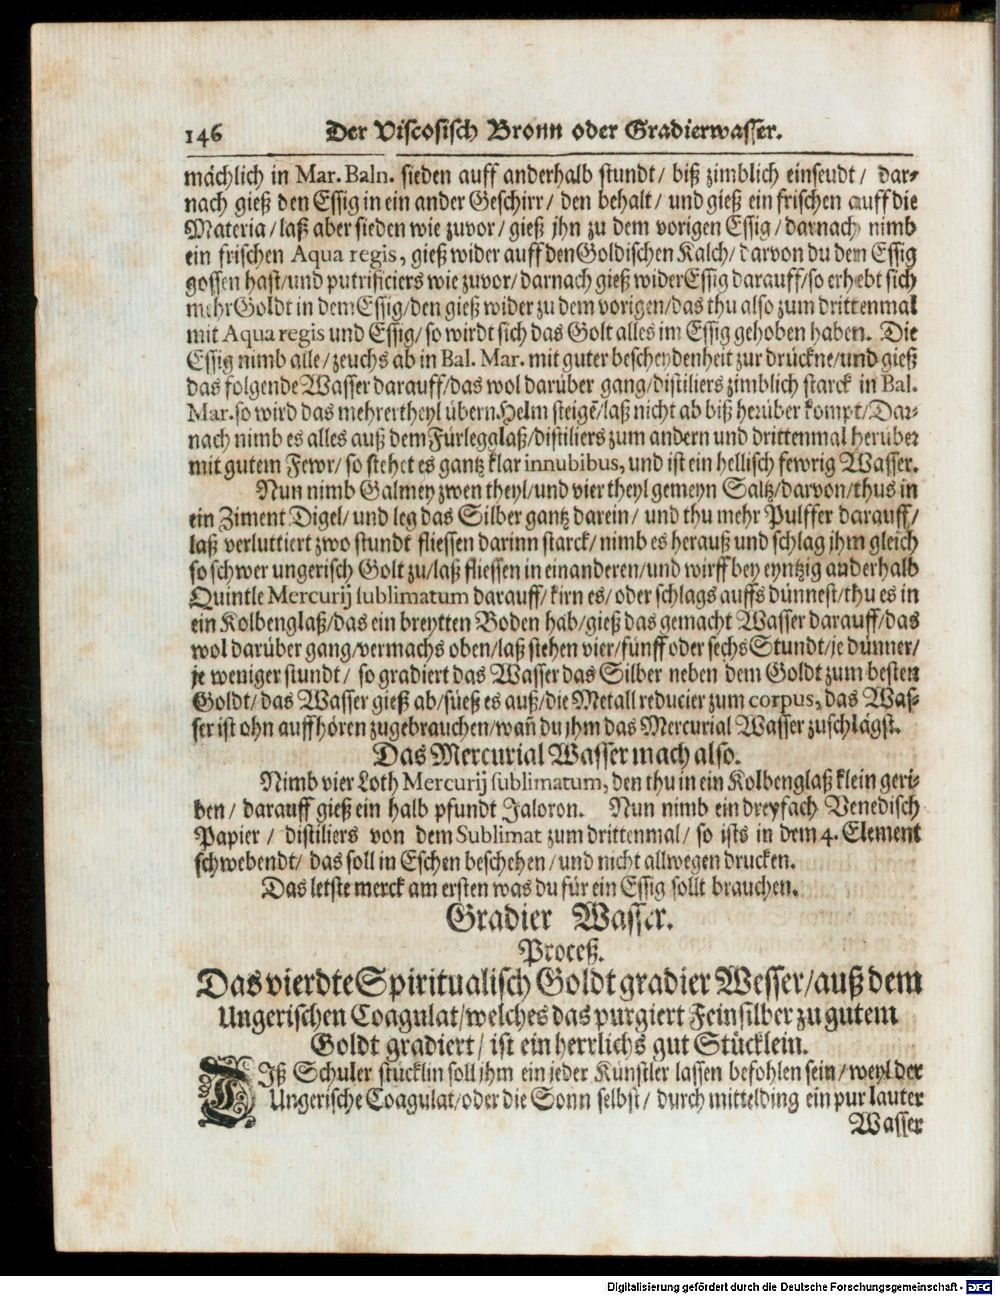 146 Der Viscosisch Bronn oder Gradierwasser.
mächlich in Mar. Baln. sieden auff anderhalb stundt/ biß zimblich einseudt/ dar-
nach gieß den Essig in ein ander Geschirr/ den behalt/ und gieß ein frischen auff die
Materia/ laß aber sieden wie zuvor/ gieß jhn zu dem vorigen Essig/ darnach nimb
ein frischen Aqua regis, gieß wider auff den Goldischen Kalch/ darvon du dem Essig
gossen hast/ und putrificiers wie zuvor/ darnach gieß wider Essig darauff/ so erhebt sich
mehr Goldt in dem Essig/ den gieß wider zu dem vorigen/ das thu also zum drittenmal
mit Aqua regis und Essig/ so wirdt sich das Golt alles im Essig gehoben haben. Die
Essig nimb alle/ zeuchs ab in Bal. Mar. mit guter bescheydenheit zur drückne/ und gieß
das folgende Wasser darauff/ das wol darüber gang/ distiliers zimblich starck in Bal.
Mar. so wird das mehrer theyl übern Helm steigē/ laß nicht ab biß herüber kompt/ Dar-
nach nimb es alles auß dem Fürlegglaß/ distiliers zum andern und drittenmal herüber
mit gutem Fewr/ so stehet es gantz klar innubibus, und ist ein hellisch fewrig Wasser.
Nun nimb Galmey zwen theyl/ und vier theyl gemeyn Saltz/ darvon/ thus in
ein Ziment Digel/ und leg das Silber gantz darein/ und thu mehr Pulffer darauff/
laß verluttiert zwo stundt fliessen darinn starck/ nimb es herauß und schlag jhm gleich
so schwer ungerisch Golt zu/ laß fliessen in einanderen/ und wirff bey eyntzig anderhalb
Quintle Mercurij sublimatum darauff/ kirn es/ oder schlags auffs dünnest/ thu es in
ein Kolbenglaß/ das ein breytten Boden hab/ gieß das gemacht Wasser darauff/ das
wol darüber gang/ vermachs oben/ laß stehen vier/ fünff oder sechs Stundt/ je dünner/
je weniger stundt/ so gradiert das Wasser das Silber neben dem Goldt zum besten
Goldt/ das Wasser gieß ab/ süeß es auß/ die Metall reducier zum corpus, das Was-
ser ist ohn auffhören zugebrauchen/ wañ du jhm das Mercurial Wasser zuschlägst.
Das Mercurial Wasser mach also.
Nimb vier Loth Mercurij sublimatum, den thu in ein Kolbenglaß klein geri-
ben/ darauff gieß ein halb pfundt Jaloron. Nun nimb ein dreyfach Venedisch
Papier/ distiliers von dem Sublimat zum drittenmal/ so ists in dem 4. Element
schwebendt/ das soll in Eschen beschehen/ und nicht allwegen drucken.
Das letste merck am ersten was du für ein Essig sollt brauchen.
Gradier Wasser.
Proceß.
Das vierdte Spiritualisch Goldt gradier Wesser/ auß dem
Ungerischen Coagulat/ welches das purgiert Feinsilber zu gutem
Goldt gradiert/ ist ein herrlichs gut Stücklein.
DIß Schuler stücklin soll jhm ein jeder Künstler lassen befohlen sein/ weyl der
Ungerische Coagulat/ oder die Sonn selbst/ durch mittelding ein pur lauter
Wasser
Digitalisierung gefördert durch die Deutsche Forschungsgemeinschaft - DFG